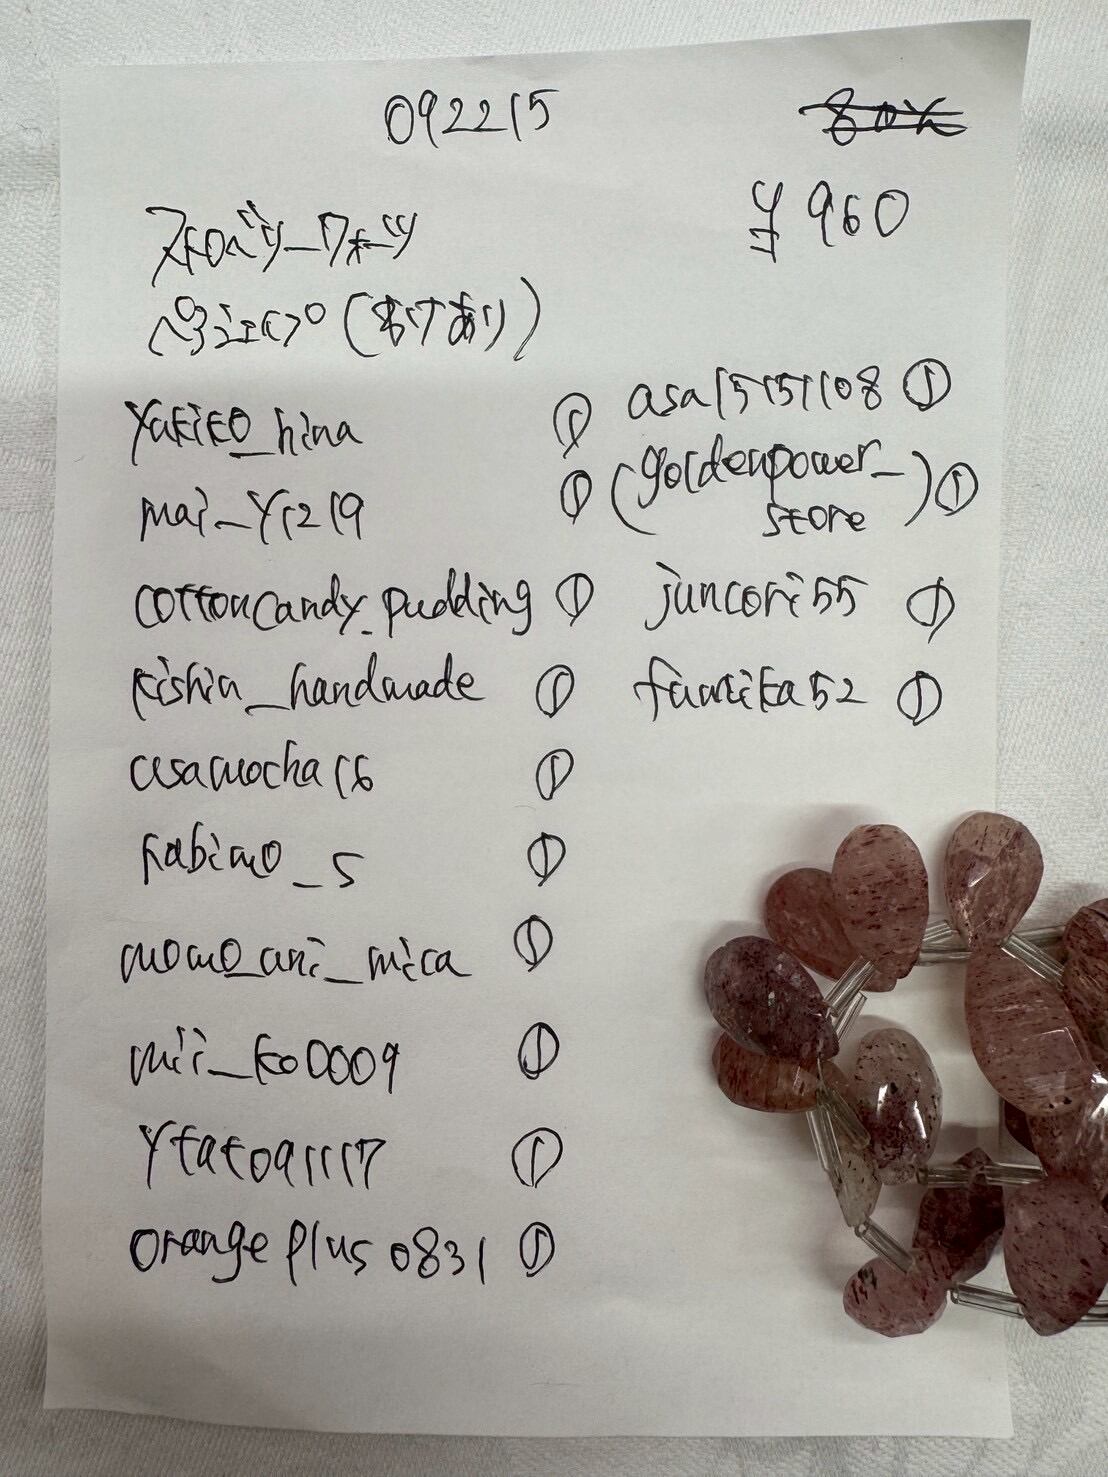 092215
¥960
ストロベリークォーツ
ペアシェイプ(訳けあり)
yakiko_hina ①
mai_y1219 ①
cottoncandy_pudding ①
kishin_handmade ①
asamocha16 ①
habimo_s ①
momo_ani_mica ①
mii_ko0009 ①
ytato91117 ①
orangeplus0831 ①
asa15151108 ①
(goldenpower_
store) ①
juncori55 ①
fumika52 ①